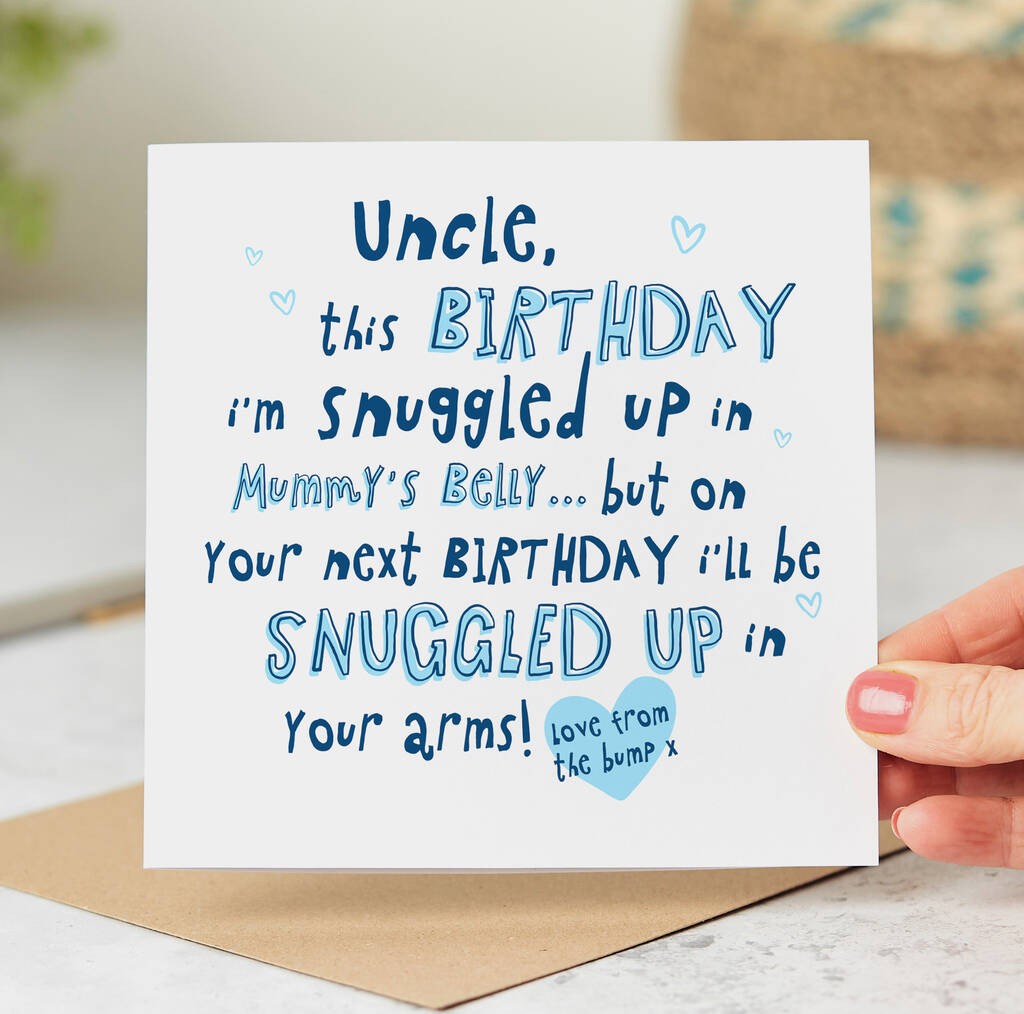 Uncle,
this BIRTHDAY
i'm snuggled up in
Mummy's Belly... but on
your next BIRTHDAY i'll be
SNUGGLED UP in
your arms!
love from
the bump x